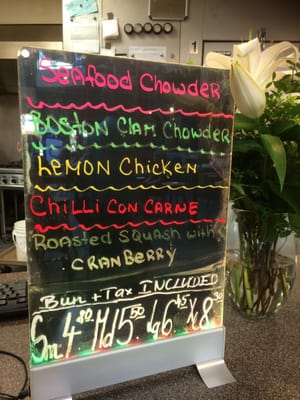 Seafood Chowder
Boston Clam Chowder
Lemon Chicken
Chilli Con Carne
Roasted Squash with
Cranberry
Bun + Tax INCLUDED
Sm 4.80 Md 5.50 Lg 6.45 XL 8.30